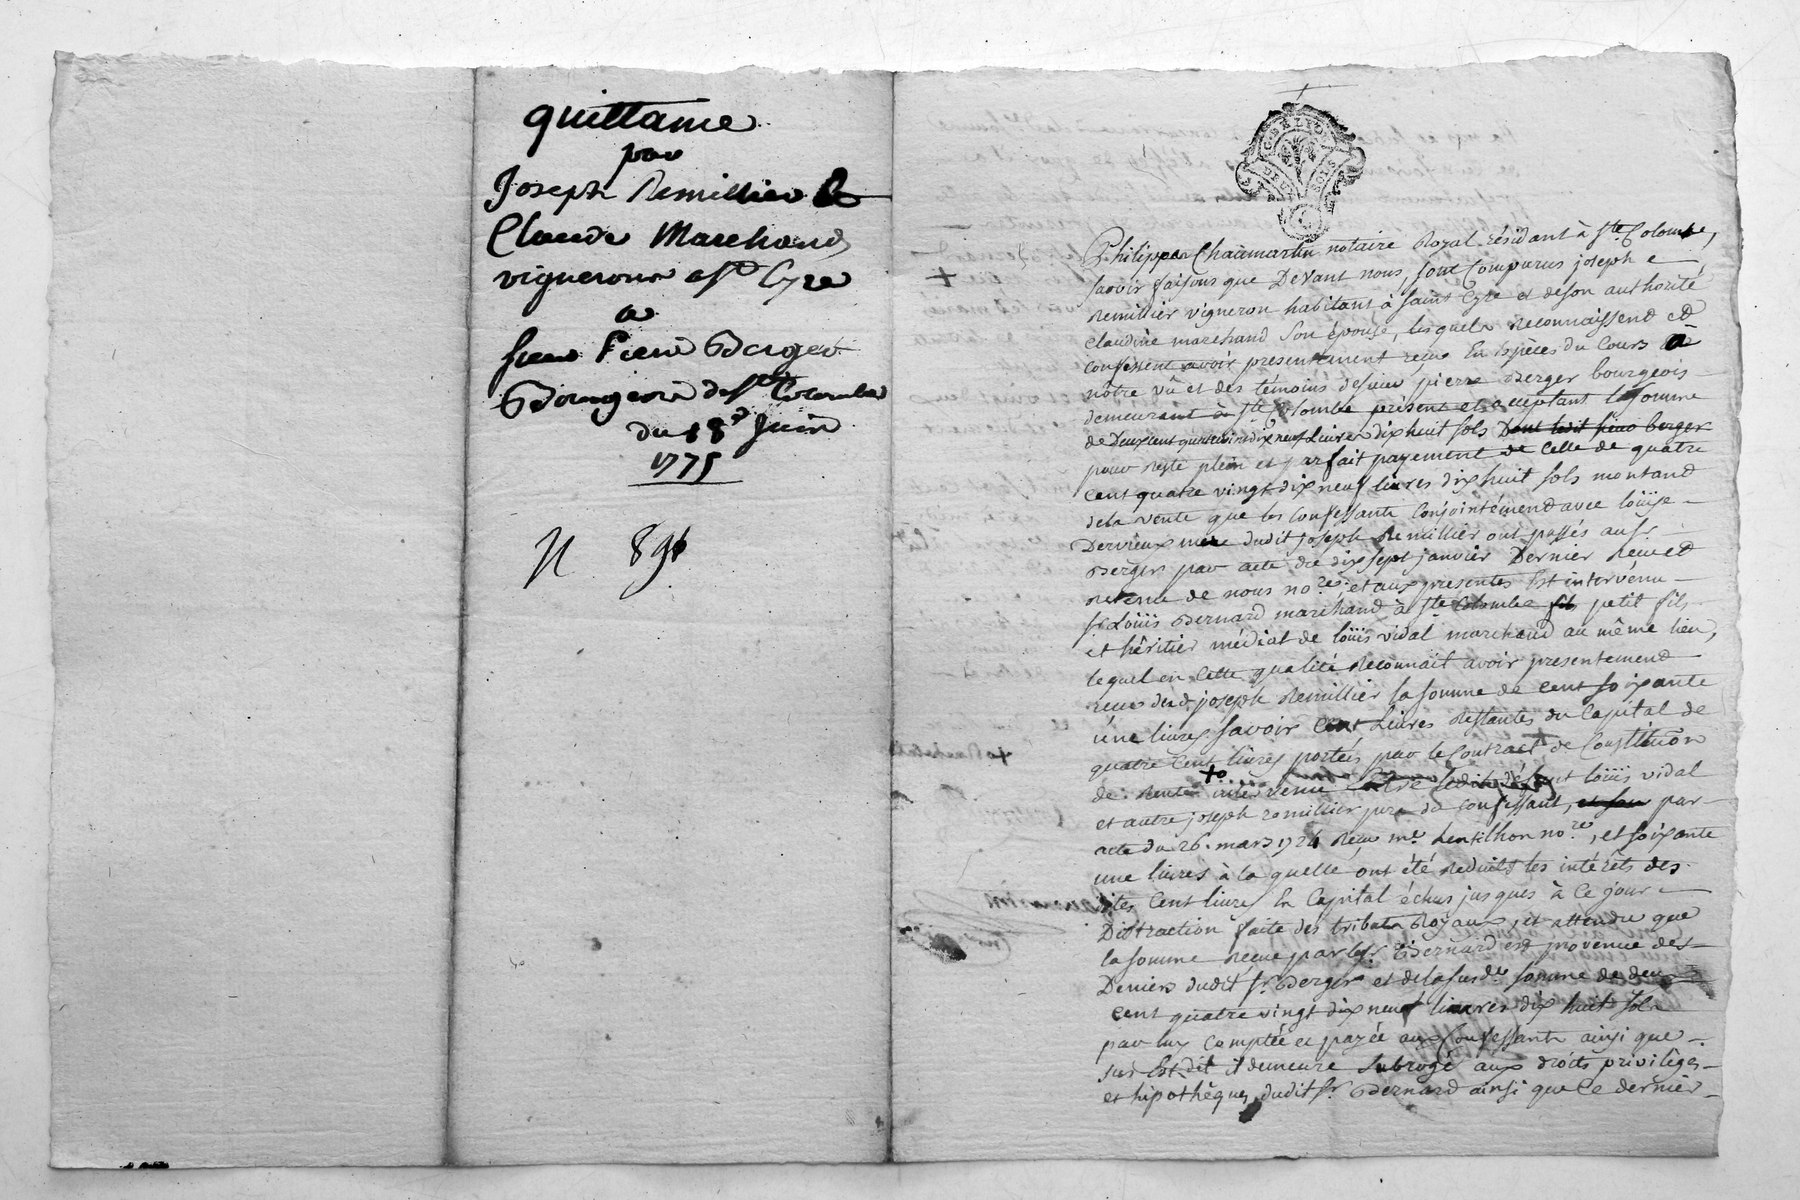 quittance
par
Joseph Remillier &
Claude Marchand,
vignerons a St Cyre
a
sieur Pierre Berger
Bourgeois de Ste Colombe
du 18e Juin
1775
N 891
G. DE LYON
DEUX SOLS
Philippe Chaumartin notaire Royal résidant à Ste Colombe,
savoir faisons que Devant nous, sont Comparus joseph
Remillier vigneron habitant à saint Cyre et deson authorité
claudine marchand son épouse, lesquels Reconnaissent et
confessent avoir présentement reçu En Espèces du Cours à
nôtre vû et des témoins de sieur pierre Berger bourgeois
demeurant à Ste Colombe présent et acceptant la somme
de Deux cent quatre vingt dix neuf Livres dix huit sols Dont ledit sieur berger
pour reste plein et parfait payement de Celle de quatre
cent quatre vingt dix neuf livres dix huit sols montand
dela vente que les Confessants Conjointémend avec loüise
Dervieux mère dudit joseph Remillier ont passés aud sr
Berger par acte du dix sept janvier Dernier Reçu et
Retenu de nous nore, et aux présentes Est intervénu
sr Loüis Bernard marchand à Ste Colombe fils petit fils
et hêritier médiat de loüis vidal marchand au même lieu,
lequel en Cette qualité Reconnait avoir présentemend
reçu dud. joseph Remillier la somme de Cent soixante
üne livres savoir Cent Livres Restantes du Capital de
quatre Cent livres portés par le Contract de Constituon
de Rente intervenu entre ledit défunt loüis vidal
et autre joseph remillier père du confessant, et son par
acte du 26. mars 1724 Reçu me. Lentilhon nore, et soixante
une livres à la quelle ont été Reduits les intérêts des
dites Cent livres En Capital échus jusques à Ce jour
Distraction faite des tributs Royaux, et attendu que
la somme Reçue par led sr. Bernard est provenue des
Deniers dudit sr. Berger et dela susde somme de deux
cent quatre vingt dix neuf livres dix huit sols
par luy comptée et payée aux Confessants ainsi que
sus Est dit il demeure subrogé aux droits privilèges
et hipothèques dudit sr. Bernard ainsi que Ce dernier